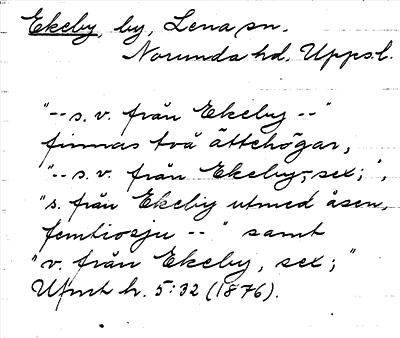 Ekeby, by, Lena sn.
Norunda hd. Upps.l.
"-- s. v. från Ekeby --"
finnas två ättehögar,
"-- s. v. från Ekeby, sex;",
"s. från Ekeby utmed åsen,
femtiosju -- " samt
"v. från Ekeby, sex;"
Ufmt h. 5:32 (1876).